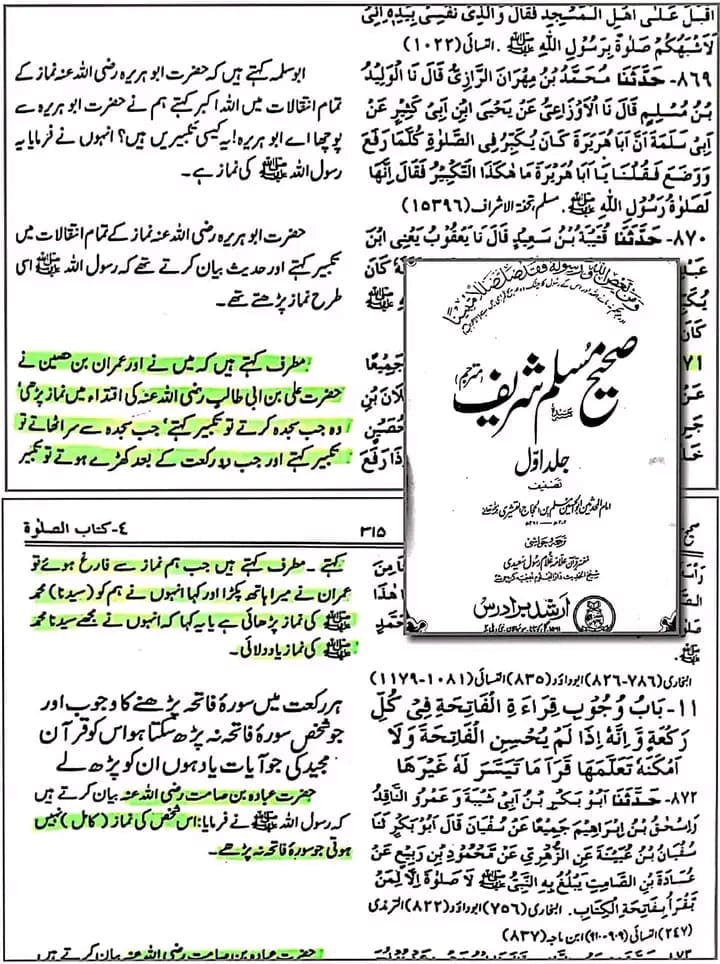 اقبل على اهل المسجد فقال والذى نفسى بيده انى
لاشبهكم صلوة برسول الله ﷺ. النسائى (١٠٢٢)
ابوسلمہ کہتے ہیں کہ حضرت ابو ہریرہ رضی اللہ عنہ نماز کے
تمام انتقالات میں اللہ اکبر کہتے ہم نے حضرت ابو ہریرہ سے
پوچھا اے ابو ہریرہ! یہ کیسی تکبیریں ہیں؟ انہوں نے فرمایا یہ
رسول اللہ ﷺ کی نماز ہے۔
٨٦٩- حَدَّثَنَا مُحَمَّدُ بْنُ مِهْرَانَ الرَّازِىُّ قَالَ نَا الْوَلِيْدُ
بْنُ مُسْلِمٍ قَالَ نَا الْاَوْزَاعِىُّ عَنْ يَحْيَى ابْنِ اَبِىْ كَثِيْرٍ عَنْ
اَبِىْ سَلَمَةَ اَنَّ اَبَا هُرَيْرَةَ كَانَ يُكَبِّرُ فِى الصَّلٰوةِ كُلَّمَا رَفَعَ
وَوَضَعَ فَقُلْنَا يَا اَبَا هُرَيْرَةَ مَا هٰكَذَا التَّكْبِيْرُ فَقَالَ اِنَّهَا
لَصَلٰوةُ رَسُوْلِ اللهِ ﷺ. مسلم، تحفۃ الاشراف (١٥٣٩٦)
حضرت ابو ہریرہ رضی اللہ عنہ نماز کے تمام انتقالات میں
تکبیر کہتے اور حدیث بیان کرتے تھے کہ رسول اللہ ﷺ اسی
طرح نماز پڑھتے تھے۔
٨٧٠- حَدَّثَنَا قُتَيْبَةُ بْنُ سَعِيْدٍ قَالَ نَا يَعْقُوْبُ يَعْنِى ابْنَ
مطرف کہتے ہیں کہ میں نے اور عمران بن حصین نے
حضرت علی بن ابی طالب رضی اللہ عنہ کی اقتداء میں نماز پڑھی'
وہ جب سجدہ کرتے تو تکبیر کہتے' جب سجدہ سے سر اٹھاتے تو
تکبیر کہتے اور جب دو رکعت کے بعد کھڑے ہوتے تو تکبیر
صحیح مسلم شریف (مترجم)
جلد اوّل
تصنیف
امام المحدثین ابوالحسین مسلم بن الحجاج القشیری
علامہ غلام رسول سعیدی
٣١٥
٤- کتاب الصلوٰۃ
کہتے۔ مطرف کہتے ہیں جب ہم نماز سے فارغ ہوئے تو
عمران نے میرا ہاتھ پکڑا اور کہا انہوں نے ہم کو (سیدنا) محمد
ﷺ کی نماز پڑھائی ہے یا یہ کہا کہ انہوں نے مجھے سیدنا محمد
ﷺ کی نماز یاد دلائی۔
البخاری (٧٨٦-٨٢٦) ابوداؤد (٨٣٥) النسائی (١٠٨١-١١٧٩)
ہر رکعت میں سورۂ فاتحہ پڑھنے کا وجوب اور
جو شخص سورۂ فاتحہ نہ پڑھ سکتا ہو اس کو قرآن
مجید کی جو آیات یاد ہوں ان کو پڑھ لے
١١- بَابُ وُجُوْبِ قِرَاءَةِ الْفَاتِحَةِ فِىْ كُلِّ
رَكْعَةٍ وَّاِنَّهُ اِذَا لَمْ يُحْسِنِ الْفَاتِحَةَ وَلَا
اَمْكَنَهُ تَعَلُّمُهَا قَرَأَ مَا تَيَسَّرَ لَهُ غَيْرَهَا
حضرت عبادہ بن صامت رضی اللہ عنہ بیان کرتے ہیں
کہ رسول اللہ ﷺ نے فرمایا: اس شخص کی نماز (کامل) نہیں
ہوتی جو سورۂ فاتحہ نہ پڑھے۔
٨٧٢- حَدَّثَنَا اَبُوْ بَكْرِ بْنُ اَبِىْ شَيْبَةَ وَعَمْرُو النَّاقِدُ
وَاِسْحٰقُ بْنُ اِبْرَاهِيْمَ جَمِيْعًا عَنْ سُفْيَانَ قَالَ اَبُوْ بَكْرٍ نَا
سُفْيَانُ بْنُ عُيَيْنَةَ عَنِ الزُّهْرِىِّ عَنْ مَحْمُوْدِ بْنِ رَبِيْعٍ عَنْ
عُبَادَةَ بْنِ الصَّامِتِ يَبْلُغُ بِهِ النَّبِىَّ ﷺ لَا صَلٰوةَ اِلَّا لِمَنْ
يَقْرَأُ بِفَاتِحَةِ الْكِتَابِ. البخاری (٧٥٦) ابوداؤد (٨٢٢) الترمذی
(٢٤٧) النسائی (٩٠٩-٩١٠) ابن ماجہ (٨٣٧)
حضرت عبادہ بن صامت رضی اللہ عنہ بیان کرتے ہیں